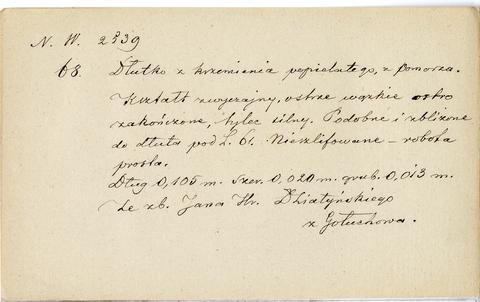 N. W. 2539
68. Dłutko z krzemienia popielatego, z Pomorza.
Kształt zwyczajny, ostrze wązkie ostro
zakończone, tylec silny. Podobne i zbliżone
do dłuta pod L. 61. Nieszlifowane – robota
prosta.
Dług 0,105 m. szer. 0,020 m. grub. 0,013 m.
Ze zb. Jana Hr. Działyńskiego
z Gołuchowa.